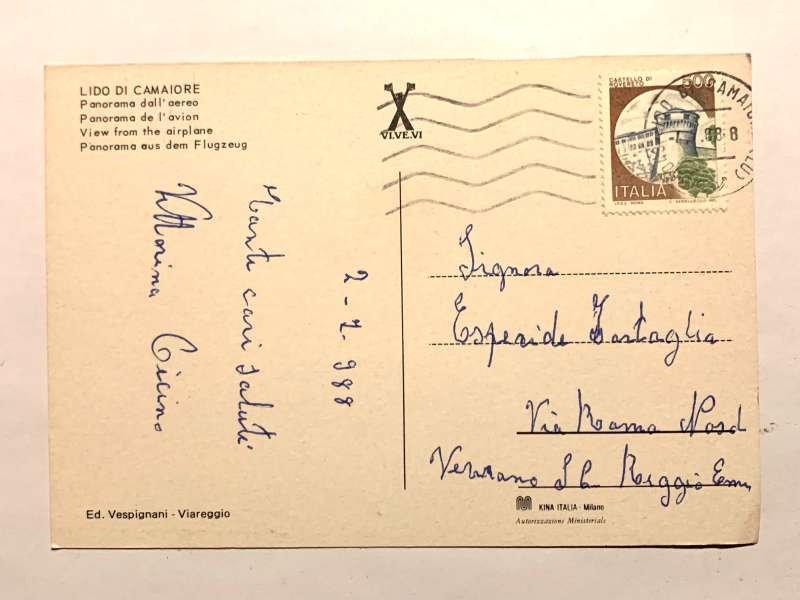 LIDO DI CAMAIORE
Panorama dall'aereo
Panorama de l'avion
View from the airplane
Panorama aus dem Flugzeug
VI.VE.VI
CASTELLO DI
ROVERETO
500
ITALIA
2-7-988
Tanti cari saluti
Vittorina Cicino
Signora
Esperide Tartaglia
Via Roma Nord
Reggio Em
Ed. Vespignani - Viareggio
KINA ITALIA - Milano
Autorizzazione Ministeriale